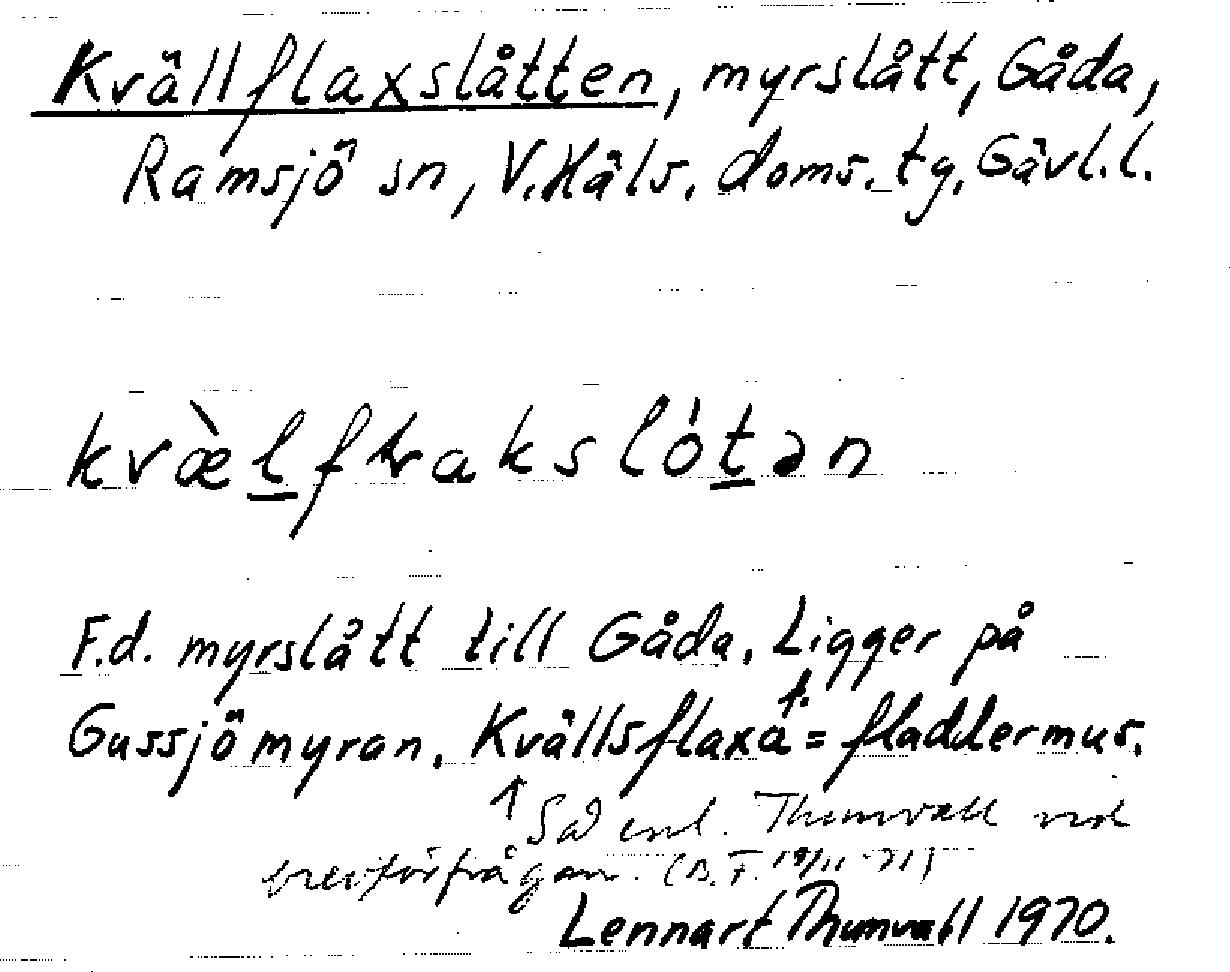 Kvällflaxslåtten, myrslått, Gåda,
Ramsjö sn, V. Häls. doms. tg, Gävl. l.
kvæ̀l̲fɫakslót̲ən
F.d. myrslått till Gåda. Ligger på
Gussjömyran. Kvällsflaxa f. = fladdermus.
↑ Så enl. Thunvall vid
brevförfrågan. (B.F. 19/11 -71)
Lennart Thunvall 1970.